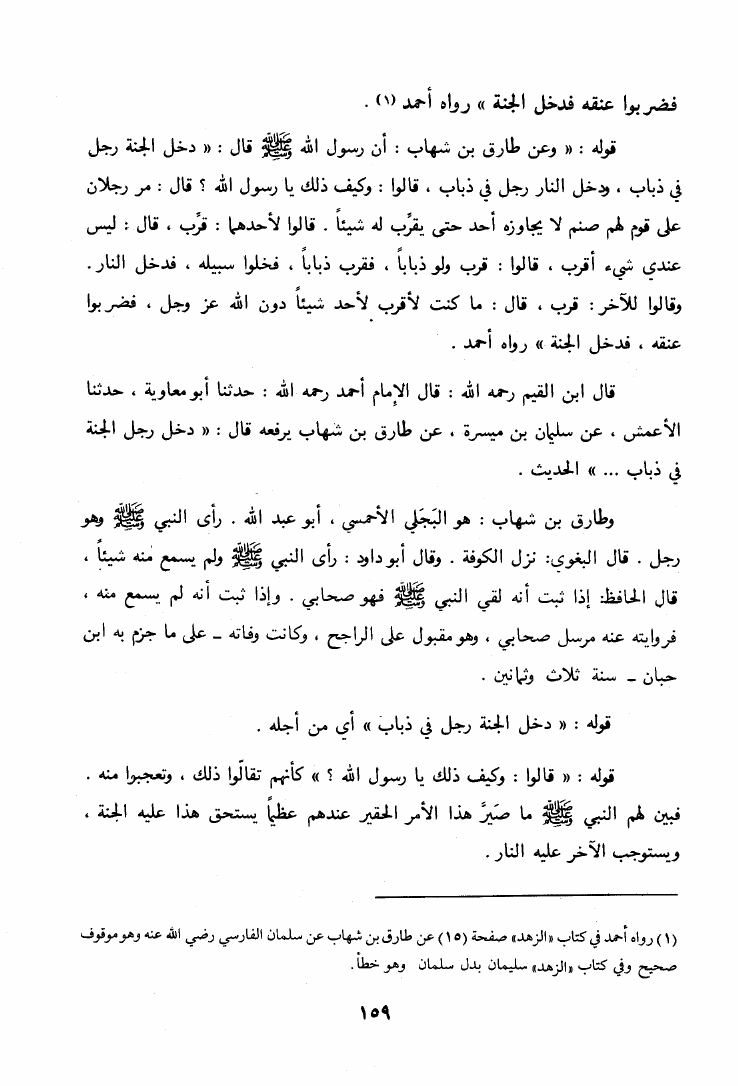 فضربوا عنقه فدخل الجنة » رواه أحمد (١) .
قوله : « وعن طارق بن شهاب : أن رسول الله ﷺ قال : « دخل الجنة رجل
في ذباب ، ودخل النار رجل في ذباب ، قالوا : وكيف ذلك يا رسول الله ؟ قال : مر رجلان
على قوم لهم صنم لا يجاوزه أحد حتى يقرِّب له شيئاً . قالوا لأحدهما : قرِّب ، قال : ليس
عندي شيء أقرب ، قالوا : قرب ولو ذباباً ، فقرب ذباباً ، فخلوا سبيله ، فدخل النار .
وقالوا للآخر : قرب ، قال : ما كنت لأقرب لأحد شيئاً دون الله عز وجل ، فضربوا
عنقه ، فدخل الجنة » رواه أحمد .
قال ابن القيم رحمه الله : قال الإمام أحمد رحمه الله : حدثنا أبو معاوية ، حدثنا
الأعمش ، عن سليمان بن ميسرة ، عن طارق بن شهاب يرفعه قال : « دخل رجل الجنة
في ذباب ... » الحديث .
وطارق بن شهاب : هو البَجَلي الأحمسي ، أبو عبد الله . رأى النبي ﷺ وهو
رجل . قال البغوي: نزل الكوفة . وقال أبو داود : رأى النبي ﷺ ولم يسمع منه شيئاً ،
قال الحافظ: إذا ثبت أنه لقي النبي ﷺ فهو صحابي . وإذا ثبت أنه لم يسمع منه ،
فروايته عنه مرسل صحابي ، وهو مقبول على الراجح ، وكانت وفاته ـ على ما جزم به ابن
حبان ـ سنة ثلاث وثمانين .
قوله : « دخل الجنة رجل في ذباب » أي من أجله .
قوله : « قالوا : وكيف ذلك يا رسول الله ؟ » كأنهم تقالّوا ذلك ، وتعجبوا منه .
فبين لهم النبي ﷺ ما صَيَّرَ هذا الأمر الحقير عندهم عظيماً يستحق هذا عليه الجنة ،
ويستوجب الآخر عليه النار .
(١) رواه أحمد في كتاب «الزهد» صفحة (١٥) عن طارق بن شهاب عن سلمان الفارسي رضي الله عنه وهو موقوف
صحيح وفي كتاب «الزهد» سليمان بدل سلمان وهو خطأ.
١٥٩